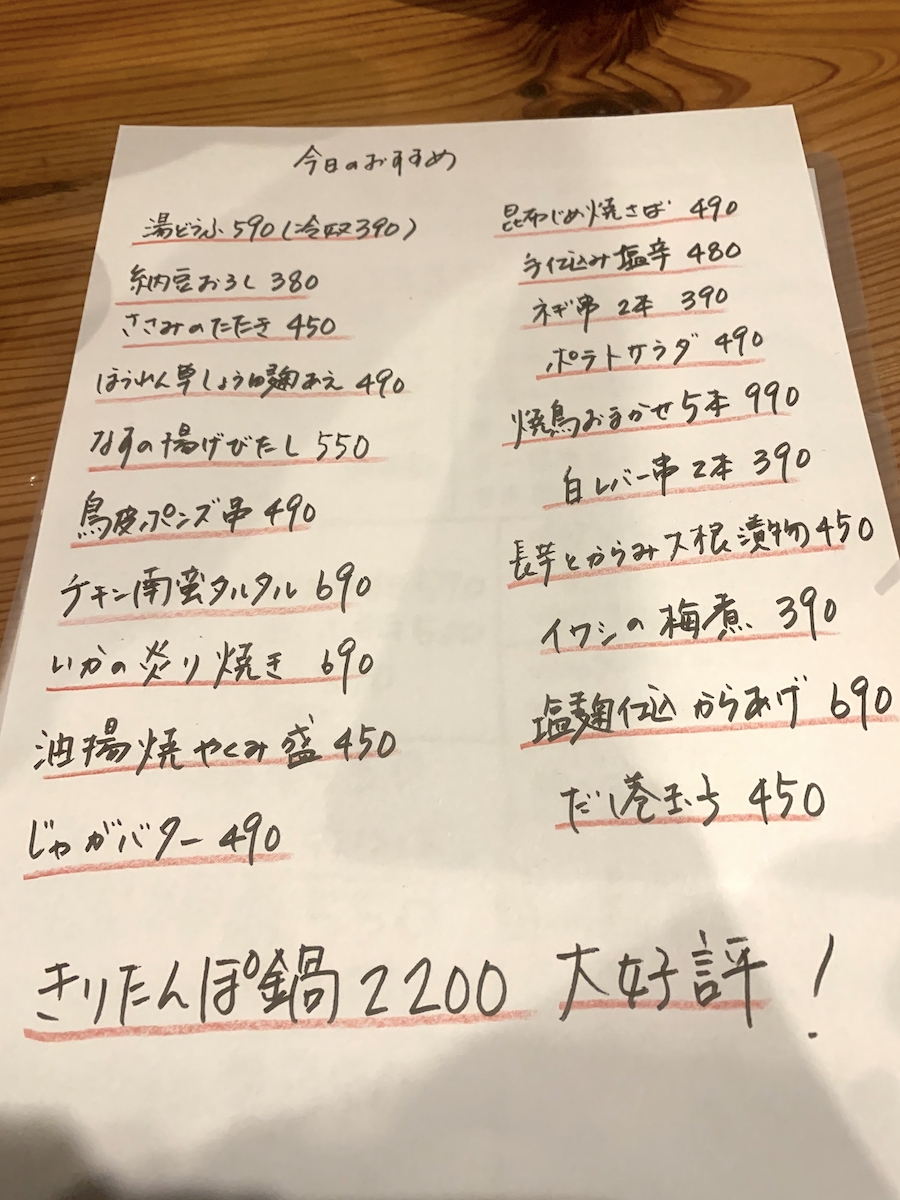 今日のおすすめ
湯どうふ 590 (冷奴 390)
納豆おろし 380
ささみのたたき 450
ほうれん草しょうゆ麹あえ 490
なすの揚げびたし 550
鳥皮ポンズ串 490
チキン南蛮タルタル 690
いかの炙り焼き 690
油揚焼やくみ盛 450
じゃがバター 490
昆布じめ焼さば 490
手仕込み塩辛 480
ネギ串 2本 390
ポテトサラダ 490
焼鳥おまかせ5本 990
白レバー串 2本 390
長芋とからみ大根漬物 450
イワシの梅煮 390
塩麹仕込からあげ 690
だし巻玉子 450
きりたんぽ鍋 2200 大好評!